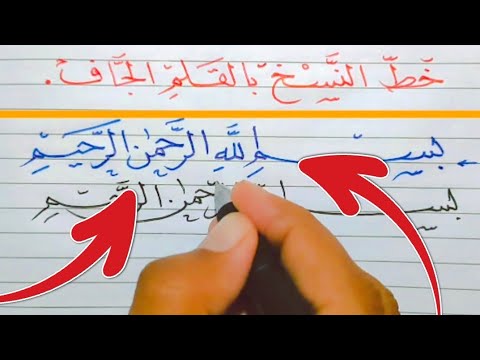 خَطّ النَّسْخ بَالقَلَمِ الجَّاف .
بِسْمِ اللَّهِ الرَّحْمٰنِ الرَّحِيمِ
بسم الرَّحِيمِ